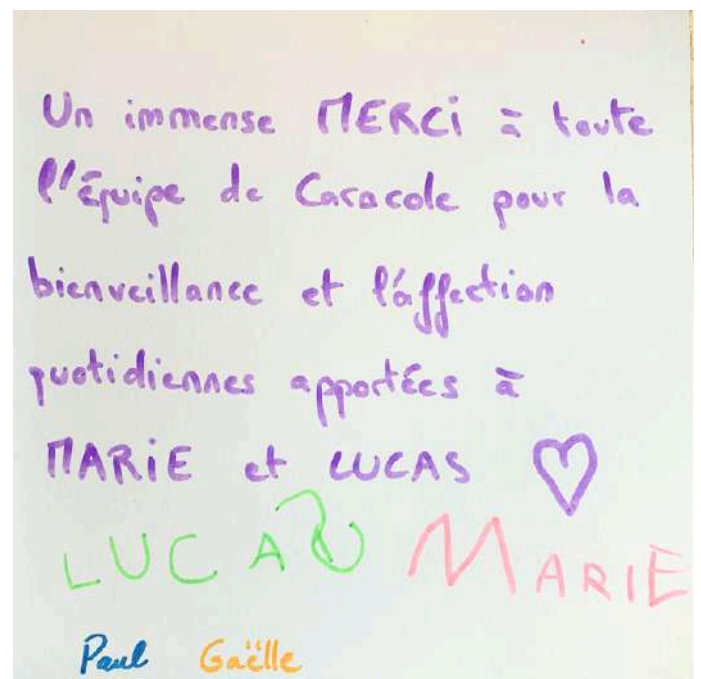 Un immense MERCi à toute
l'équipe de Caracole pour la
bienveillance et l'affection
quotidiennes apportées à
MARiE et LUCAS
LUCAS MARIE
Paul Gaëlle